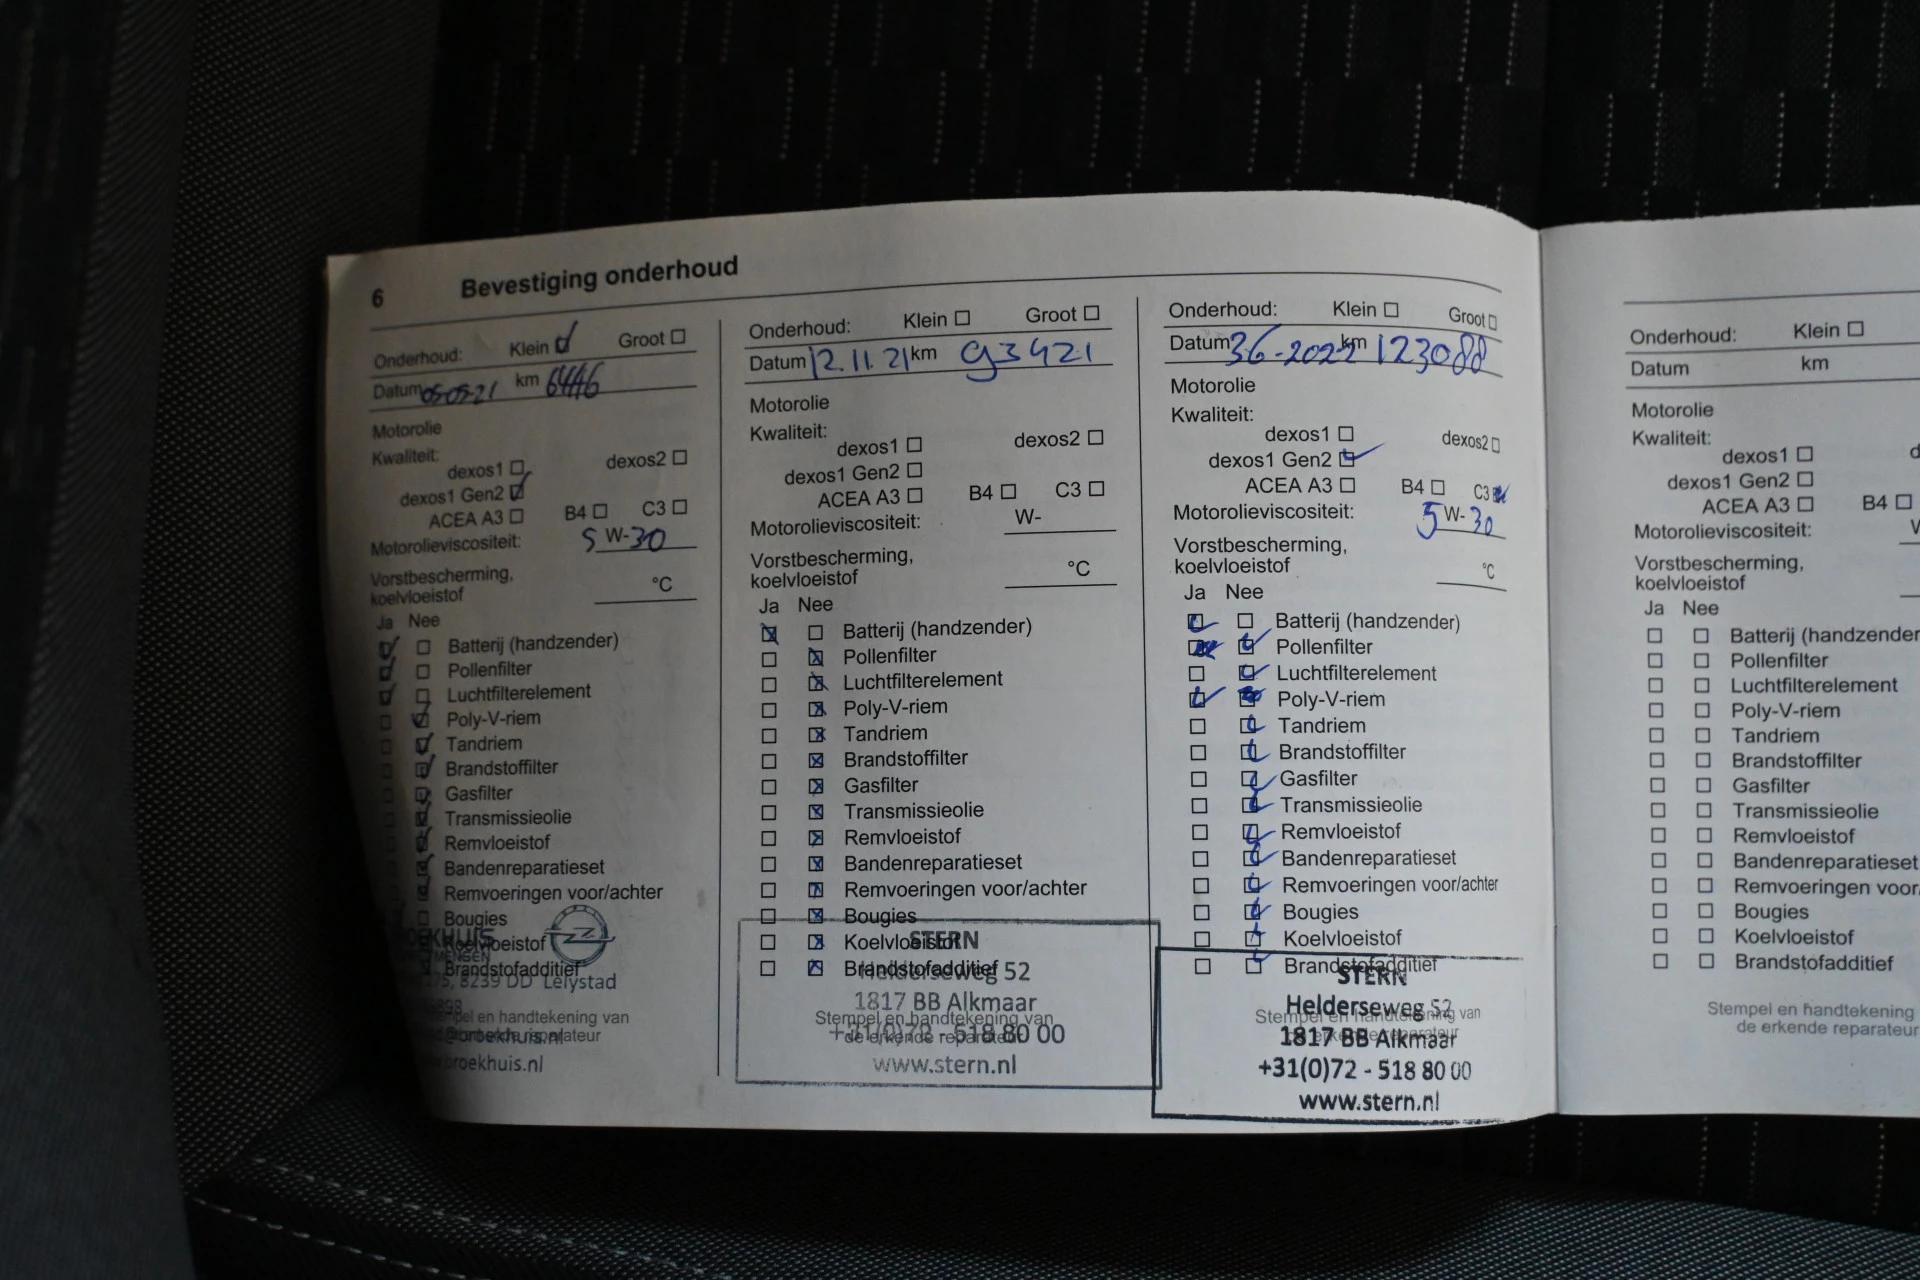 6 Bevestiging onderhoud
Onderhoud: Klein Groot
Datum 05-05-21 km
Motorolie
Kwaliteit:
dexos1 dexos2
dexos1 Gen2
ACEA A3 B4 C3
Motorolieviscositeit: 5 W-30
Vorstbescherming,
koelvloeistof °C
Ja Nee
Batterij (handzender)
Pollenfilter
Luchtfilterelement
Poly-V-riem
Tandriem
Brandstoffilter
Gasfilter
Transmissieolie
Remvloeistof
Bandenreparatieset
Remvoeringen voor/achter
Bougies
Koelvloeistof
Brandstofadditief
8239 DD Lelystad
Stempel en handtekening van
reparateur
broekhuis.nl
Onderhoud: Klein Groot
Datum 12.11.21 km 93421
Motorolie
Kwaliteit:
dexos1 dexos2
dexos1 Gen2
ACEA A3 B4 C3
Motorolieviscositeit: W-
Vorstbescherming,
koelvloeistof °C
Ja Nee
Batterij (handzender)
Pollenfilter
Luchtfilterelement
Poly-V-riem
Tandriem
Brandstoffilter
Gasfilter
Transmissieolie
Remvloeistof
Bandenreparatieset
Remvoeringen voor/achter
Bougies
Koelvloeistof
Brandstofadditief
STERN
Helderseweg 52
1817 BB Alkmaar
Stempel en handtekening van
de erkende reparateur
+31(0)72 - 518 80 00
www.stern.nl
Onderhoud: Klein Groot
Datum 36-2022 km 123088
Motorolie
Kwaliteit:
dexos1 dexos2
dexos1 Gen2
ACEA A3 B4 C3
Motorolieviscositeit: 5 W-30
Vorstbescherming,
koelvloeistof °C
Ja Nee
Batterij (handzender)
Pollenfilter
Luchtfilterelement
Poly-V-riem
Tandriem
Brandstoffilter
Gasfilter
Transmissieolie
Remvloeistof
Bandenreparatieset
Remvoeringen voor/achter
Bougies
Koelvloeistof
Brandstofadditief
STERN
Helderseweg 52
Stempel en handtekening van
1817 BB Alkmaar
de erkende reparateur
+31(0)72 - 518 80 00
www.stern.nl
Onderhoud: Klein
Datum km
Motorolie
Kwaliteit:
dexos1
dexos1 Gen2
ACEA A3 B4
Motorolieviscositeit:
Vorstbescherming,
koelvloeistof
Ja Nee
Batterij (handzender
Pollenfilter
Luchtfilterelement
Poly-V-riem
Tandriem
Brandstoffilter
Gasfilter
Transmissieolie
Remvloeistof
Bandenreparatieset
Remvoeringen voor/
Bougies
Koelvloeistof
Brandstofadditief
Stempel en handtekening
de erkende reparateur